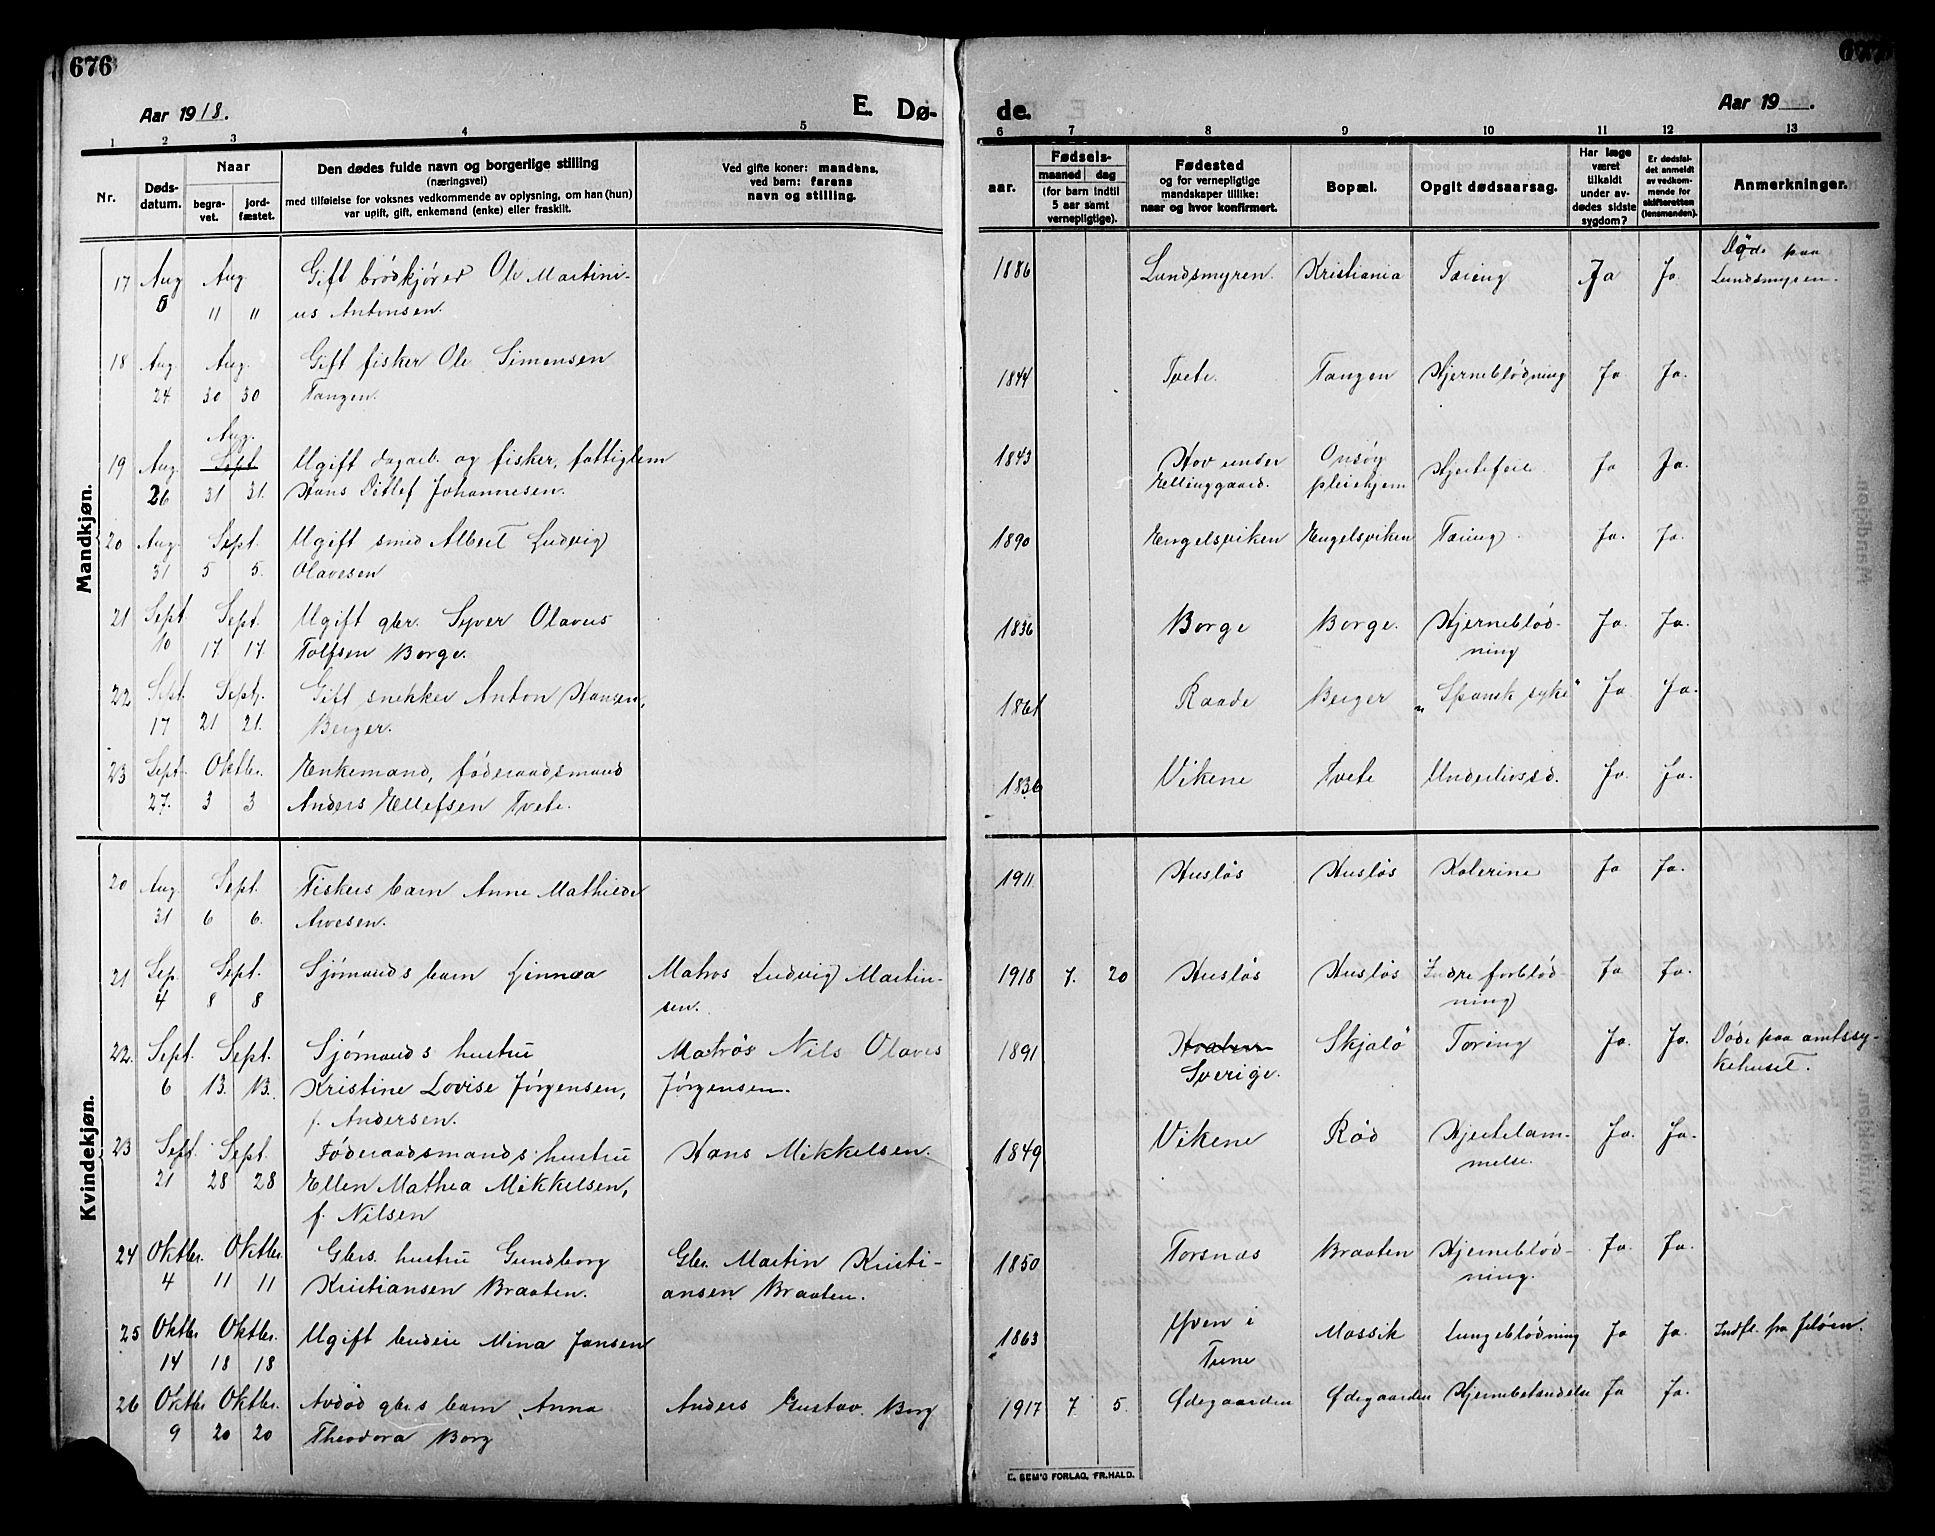 676
677
Aar 1918.
E. Dø-
de.
Aar 19    .
1 2 3 4 5 6 7 8 9 10 11 12 13
Nr.
Døds-
datum.
Naar
begra-
vet.
jord-
fæstet.
Den dødes fulde navn og borgerlige stilling
(næringsvei)
med tilføielse for voksnes vedkommende av oplysning, om han (hun)
var ugift, gift, enkemand (enke) eller fraskilt.
Ved gifte koner: mandens,
ved børn: farens
navn og stilling.
aar.
Fødsels-
maaned dag
(for barn indtil
5 aar samt
vernepligtige).
Fødested
og for vernepligtige
mandskaper tillike:
naar og hvor konfirmert.
Bopæl.
Opgit dødsaarsag.
Har læge
været
tilkaldt
under av-
dødes sidste
sygdom?
Er dødsfal-
det anmeldt
av vedkom-
mende for
skifteretten
(lensmanden).
Anmerkninger.
Mandkjøn.
17 Aug Aug Gift brødkjører Ole Martini- 1886 Lundsmyren. Kristiania Tæring Ja Ja. Døde paa
5 11 11 us Antonsen. Lundsmyren.
18 Aug. Aug. Gift fisker Ole Simensen 1844 Tvete. Tangen Hjerneblödning Ja Ja.
24 30 30 Tangen.
Aug.
19 Aug. Sept Ugift dagarb. og fisker, fattiglem 1843 Hov under Onsøy Hjertefeil. Ja Ja.
26 31 31. Hans Ditlef Johannesen. Ellinggaard. pleiehjem
20 Aug. Sept. Ugift smed Albert Ludvig 1890 Engelsviken Engelsviken Tæring. Ja. Ja.
31 5 5. Olavesen
21 Sept. Sept. Ugift gbr. Syver Olavus 1836 Borge Borge. Hjerneblød- Ja. Ja.
10 17. 17. Tolfsen Borge. ning
22 Sept. Sept. Gift snekker Anton Hansen, 1861 Raade Berger „Spansk syke“ Ja Ja.
17 21 21. Berger.
23 Sept. Oktbr. Enkemand, føderaadsmand 1836 Vikene Tvete Underlivssd. Ja. Ja.
27. 3 3 Anders Ellefsen Tvete.
Kvindekjøn.
20 Aug. Sept. Fiskers barn Anne Mathilde 1911 Husløs Husløs Kolerine Ja Ja.
31 6 6. Awesen.
21 Sep. Sept. Sjømands barn Linnea Matros Ludvig Martin- 1918 7. 20 Husløs Husløs Indre forblød- Ja Ja.
4 8 8 sen. ning
22. Sept. Sept. Sjømands hustru Matros Nils Olaves 1891 Skjælø Tæring Ja. Ja. Døde paa amtssy-
6 13. 13. Kristine Lovise Jørgensen, Jørgensen. Sverige. kehuset.
f. Andersen.
23 Sept. Sept. Føderaadsmands hustru Hans Mikkelsen. 1849 Vikene Rød Hjertelam- Ja. Ja.
21 28 28 Ellen Mathea Mikkelsen, melse.
f. Nilsen
24 Oktbr. Oktbr. Gbrs. hustru Gundborg Gbr. Martin Kristi- 1850 Torsnæs Braaten Hjerneblød- Ja. Ja.
4 11 11 Kristiansen Braaten. ansen Braaten. ning.
25 Oktbr Oktbr. Ugift budeie Mina Jansen 1863 Yven i Mossik Lungeblödning Ja Ja. Indfl. fra Jeløen.
14 18 18 Tune
26 Oktbr Oktbr. Avdød gbrs barn Anna Anders Gustav Borg 1917 7. 5. Ødegaarden Ødegaarden Hjernebetændelse Ja Ja.
9 20 20 Theodora Borg
E. SEM'S FORLAG, FR.HALD.